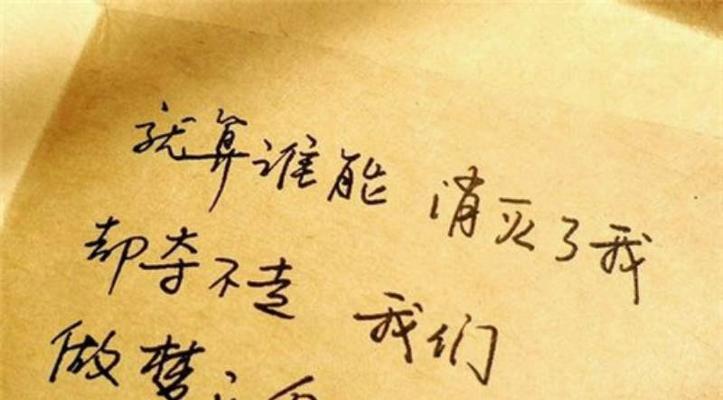 就算谁能 消灭了我
却夺不走 我们
做梦